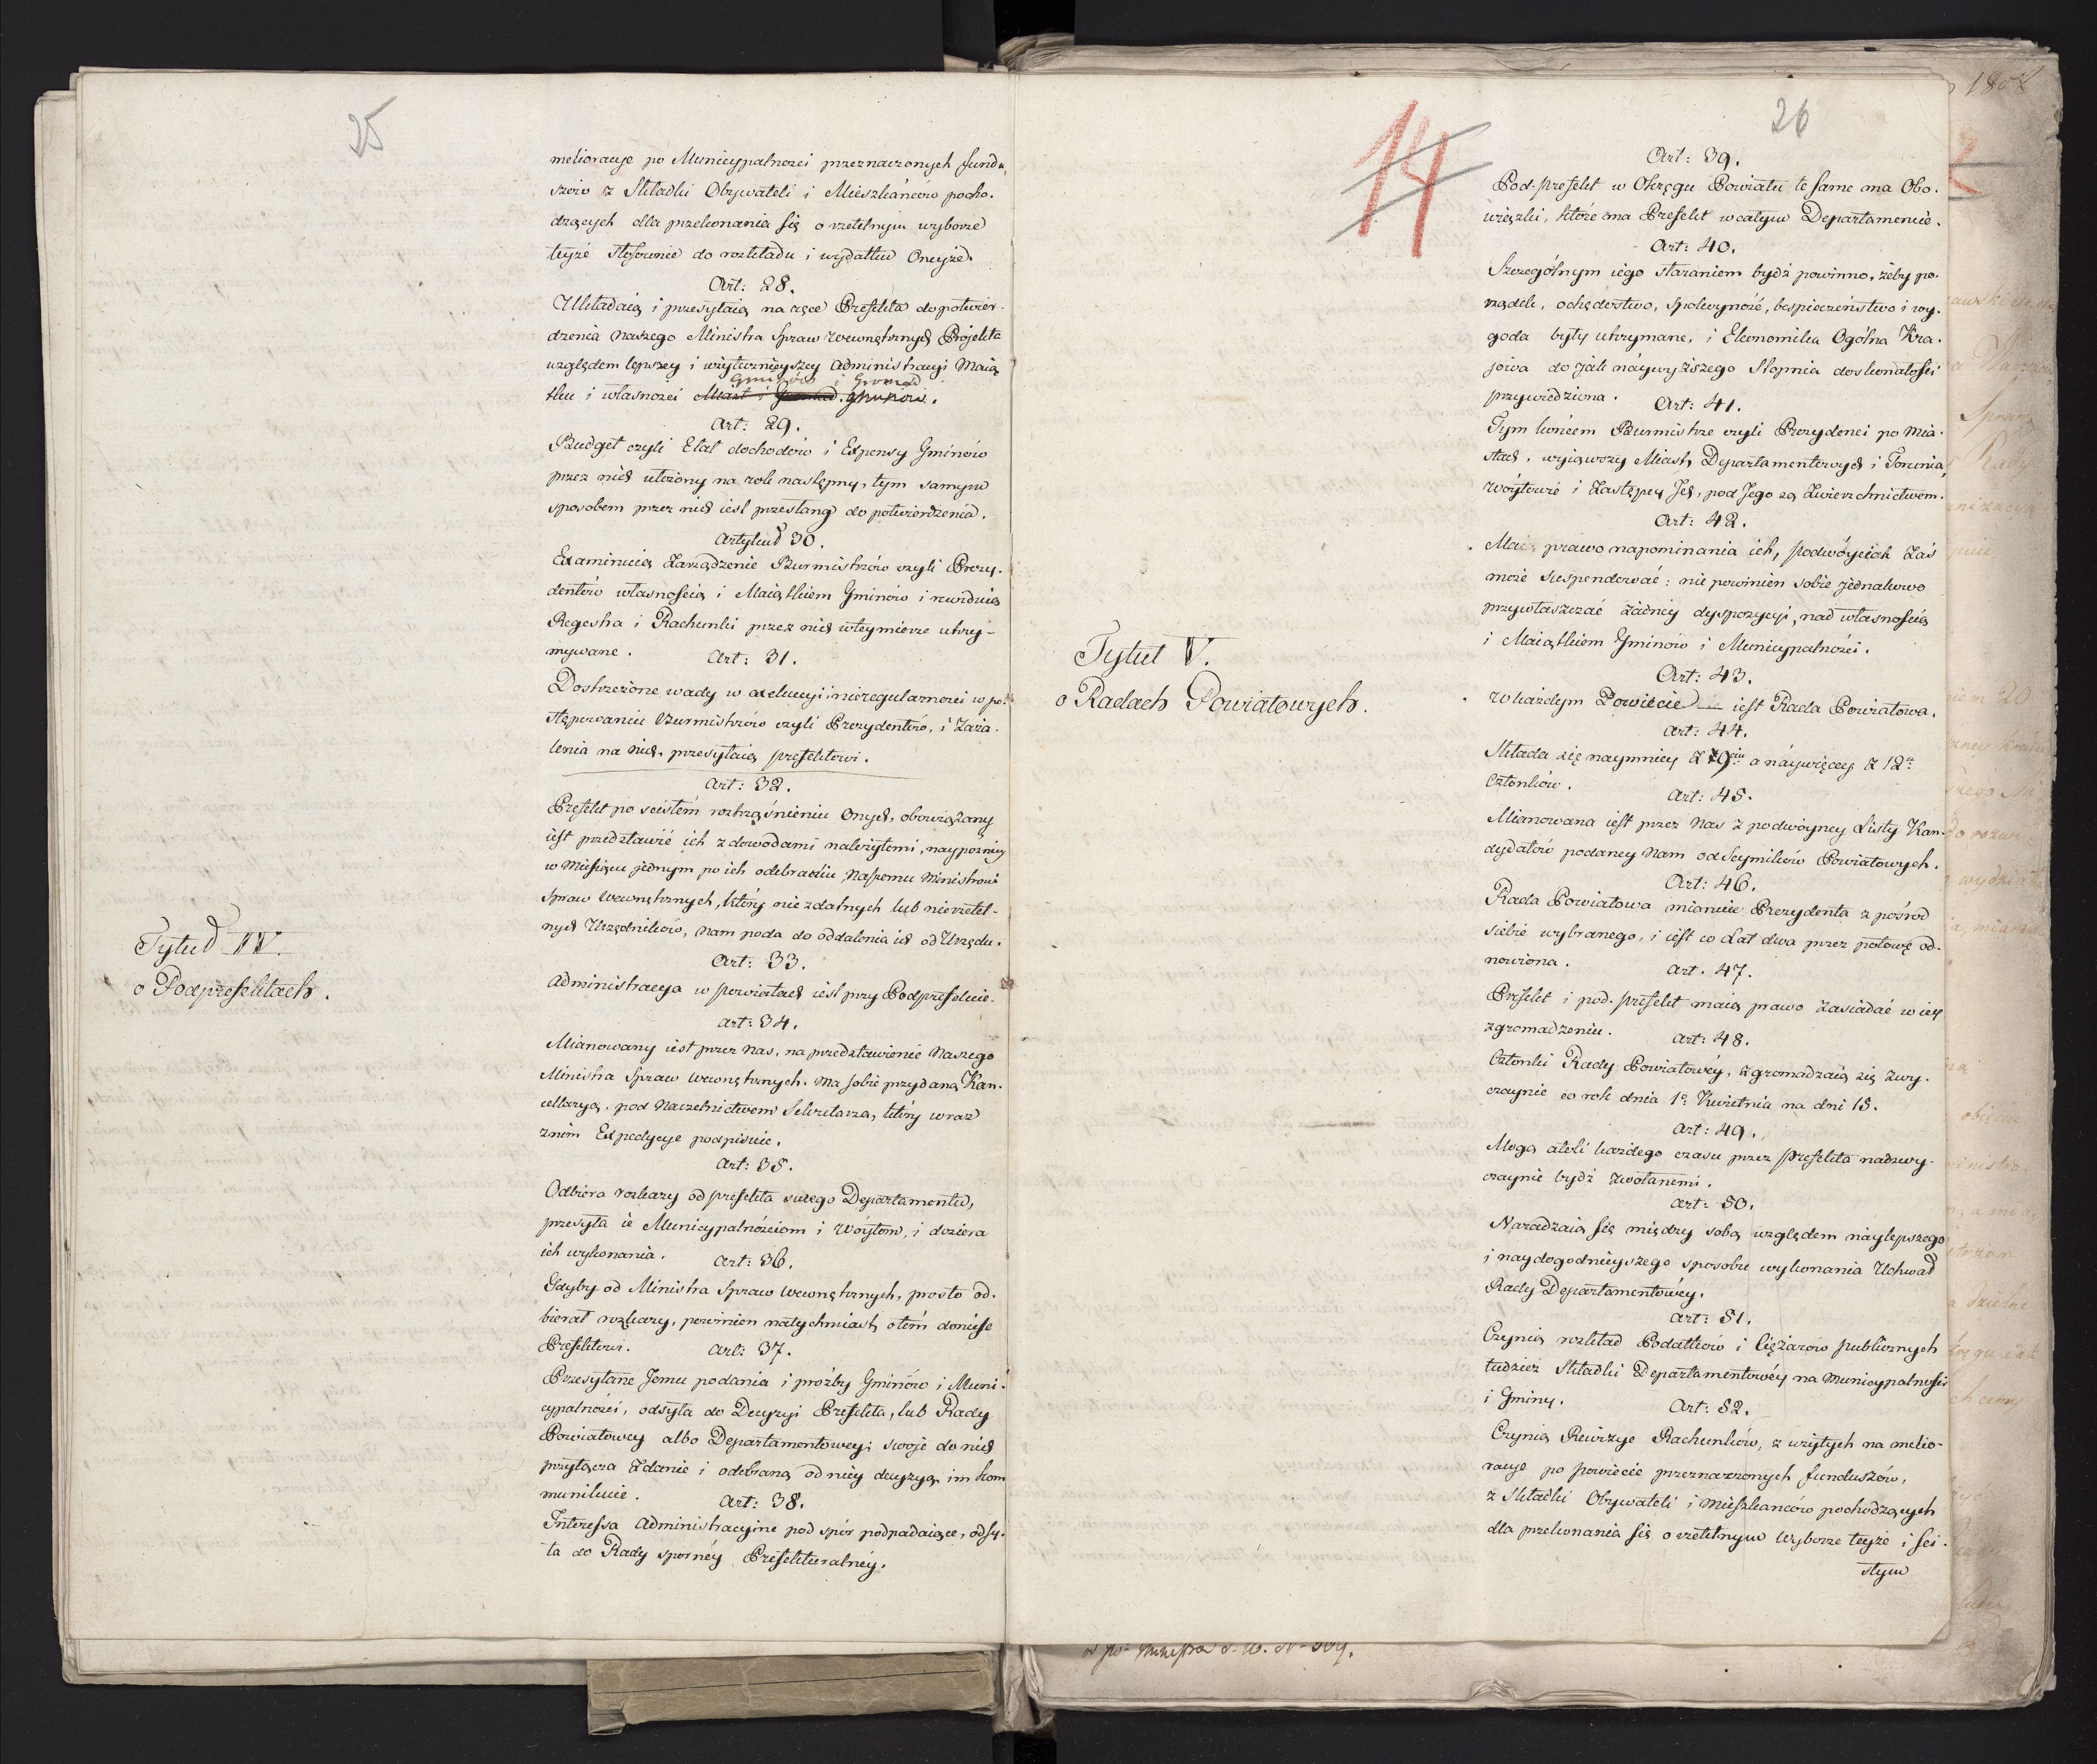 25
melioracye po Municypalnosci przeznaczonych fundu
szów z Składki Obywateli i Mieszkańców pocho-
dzących dla przekonania się o rzetelnym wyborze
teyże stosownie do rozkładu i wydatku Oneyże.
Art: 28.
Układaią i przesyłaią na ręce Prefekta do potwier-
dzenia Naszego Ministra Spraw Wewnętrznych Projekta
względem lepszey i użytecznieyszey Administracyi Maią
Gminów i Gromad
tku i własnosci Miast i Gruntów.
Art: 29.
Budget czyli Etat dochodów i Expensy Gminów
przez nich ułożony na rok następny, tym samym
sposobem przez nich iest przesłany do potwierdzenia.
Artykuł 30.
Examinuią Zarządzenie Burmistrzów czyli Prezy-
dentów własnością i Maiątkiem Gminów i rewiduią
Regestra i Rachunki przez nich w tey mierze utrzy-
mywane.
Art: 31.
Dostrzeżone wady w exekucyi i nieregularnosci w po-
stępowaniu Burmistrzów czyli Prezydentów, i Zaża-
lenia na nich, przesyłaią prefektowi.
Art: 32.
Prefekt po scisłém roztrząśnieniu Onych, obowiązany
iest przedstawić ich z dowodami należytemi, naypozniey
w Miesiącu jednym po ich odebraniu, Naszemu Ministrowi
Spraw Wewnętrznych, który niezdatnych lub nierzetel-
nych Urzędników, Nam poda do oddalenia ich od Urzędu.
Tytuł IV.
o Podprefektach.
Art: 33.
Administracya w powiatach iest przy Podprefekcie.
Art: 34.
Mianowany iest przez Nas, na przedstawienie Naszego
Ministra Spraw Wewnętrznych. Ma sobie przydaną Kan-
cellaryą, pod Naczelnictwem Sekretarza, który wraz
z nim Expedycye podpisuie.
Art: 35.
Odbiera rozkazy od prefekta swego Departamentu,
przesyła ie Municypalnościom i Wóytom, i dozièra
ich wykonania.
Art: 36.
Gdyby od Ministra Spraw Wewnętrznych, prosto od-
bierał rozkazy, powinien natychmiast o tém doniesc
Prefektowi.
Art: 37.
Przesyłane Jemu podania i proźby Gminów i Muni-
cypalnosci, odsyła do Decyzyi Prefekta, lub Rady
Powiatowey albo Departamentowey; swoje do nich
przyłącza Zdanie i odebraną od niéy decyzyą im kom
munikuie.
Art: 38.
Interessa Administracyine pod spór podpadaiące, odsy-
ła do Rady spornéy Prefekturalnéy.
14
26
Art: 39.
Pod-prefekt w Okręgu Powiatu te same ma Obo-
wiązki, które ma Prefekt w całym Departamencie.
Art: 40.
Szczególnym iego staraniem bydź powinno, żeby po-
rządek, ochędóstwo, spokoyność, bespieczeństwo i wy-
goda były utrzymane, i Ekonomika Ogólna Kra-
jowa do jak náywyższego Stopnia doskonałości
przywiedziona.
Art: 41.
Tym końcem Burmistrze czyli Prezydenci po Mia-
stach, wyiąwszy Miasta Departamentowych i Torunia,
Wóytowie i Zastępcy Jch, pod Jego są Zwierzchnictwem.
Art: 42.
Ma prawo napominania ich, podwóycich Zaś
może suspendować: nie powinien sobie jednakowo
przywłaszczać żadney dyspozycyi, nad własnością
i Maiątkiem Gminów i Municypalności.
Tytuł V.
o Radach Powiatowych.
Art: 43.
W każdym Powiecie iest Rada Powiatowa.
Art: 44.
Składa się naymniey z 9ciu a náywięcey z 12u
Członków.
Art: 45.
Mianowana iest przez Nas z podwóyney Listy Kan-
dydatów podaney Nam od Seymików Powiatowych.
Art: 46.
Rada Powiatowa mianuie Prezydenta z pośrod
siebie wybranego, i iest co Lat dwa przez połowę od-
nowiona.
Art. 47.
Prefekt i pod-prefekt maią prawo Zasiadać w iey
zgromadzeniu.
Art: 48.
Członki Rady Powiatowéy, Zgromadzaią się Zwy-
czaynie co rok dnia 1o Kwietnia na dni 15.
Art: 49.
Mogą atoli każdego czasu przez prefekta nadzwy-
czaynie bydź Zwołanemi.
Art: 50.
Naradzaią się między sobą względem náylepszego
i naydogodnieyszego sposobu wykonania Uchwał
Rady Departamentowéy.
Art: 51.
Czynią rozkład Podatków i Ciężarów publicznych
tudzież Składki Departamentowéy na Municypalności
i Gminy.
Art: 52.
Czynią Rewizye Rachunków, z użytych na melio-
racye po powiecie przeznaczonych funduszów,
z Składki Obywateli i Mieszkanców pochodzących
dla przekonania się o rzetelnym Wyborze teyże i sci-
słym